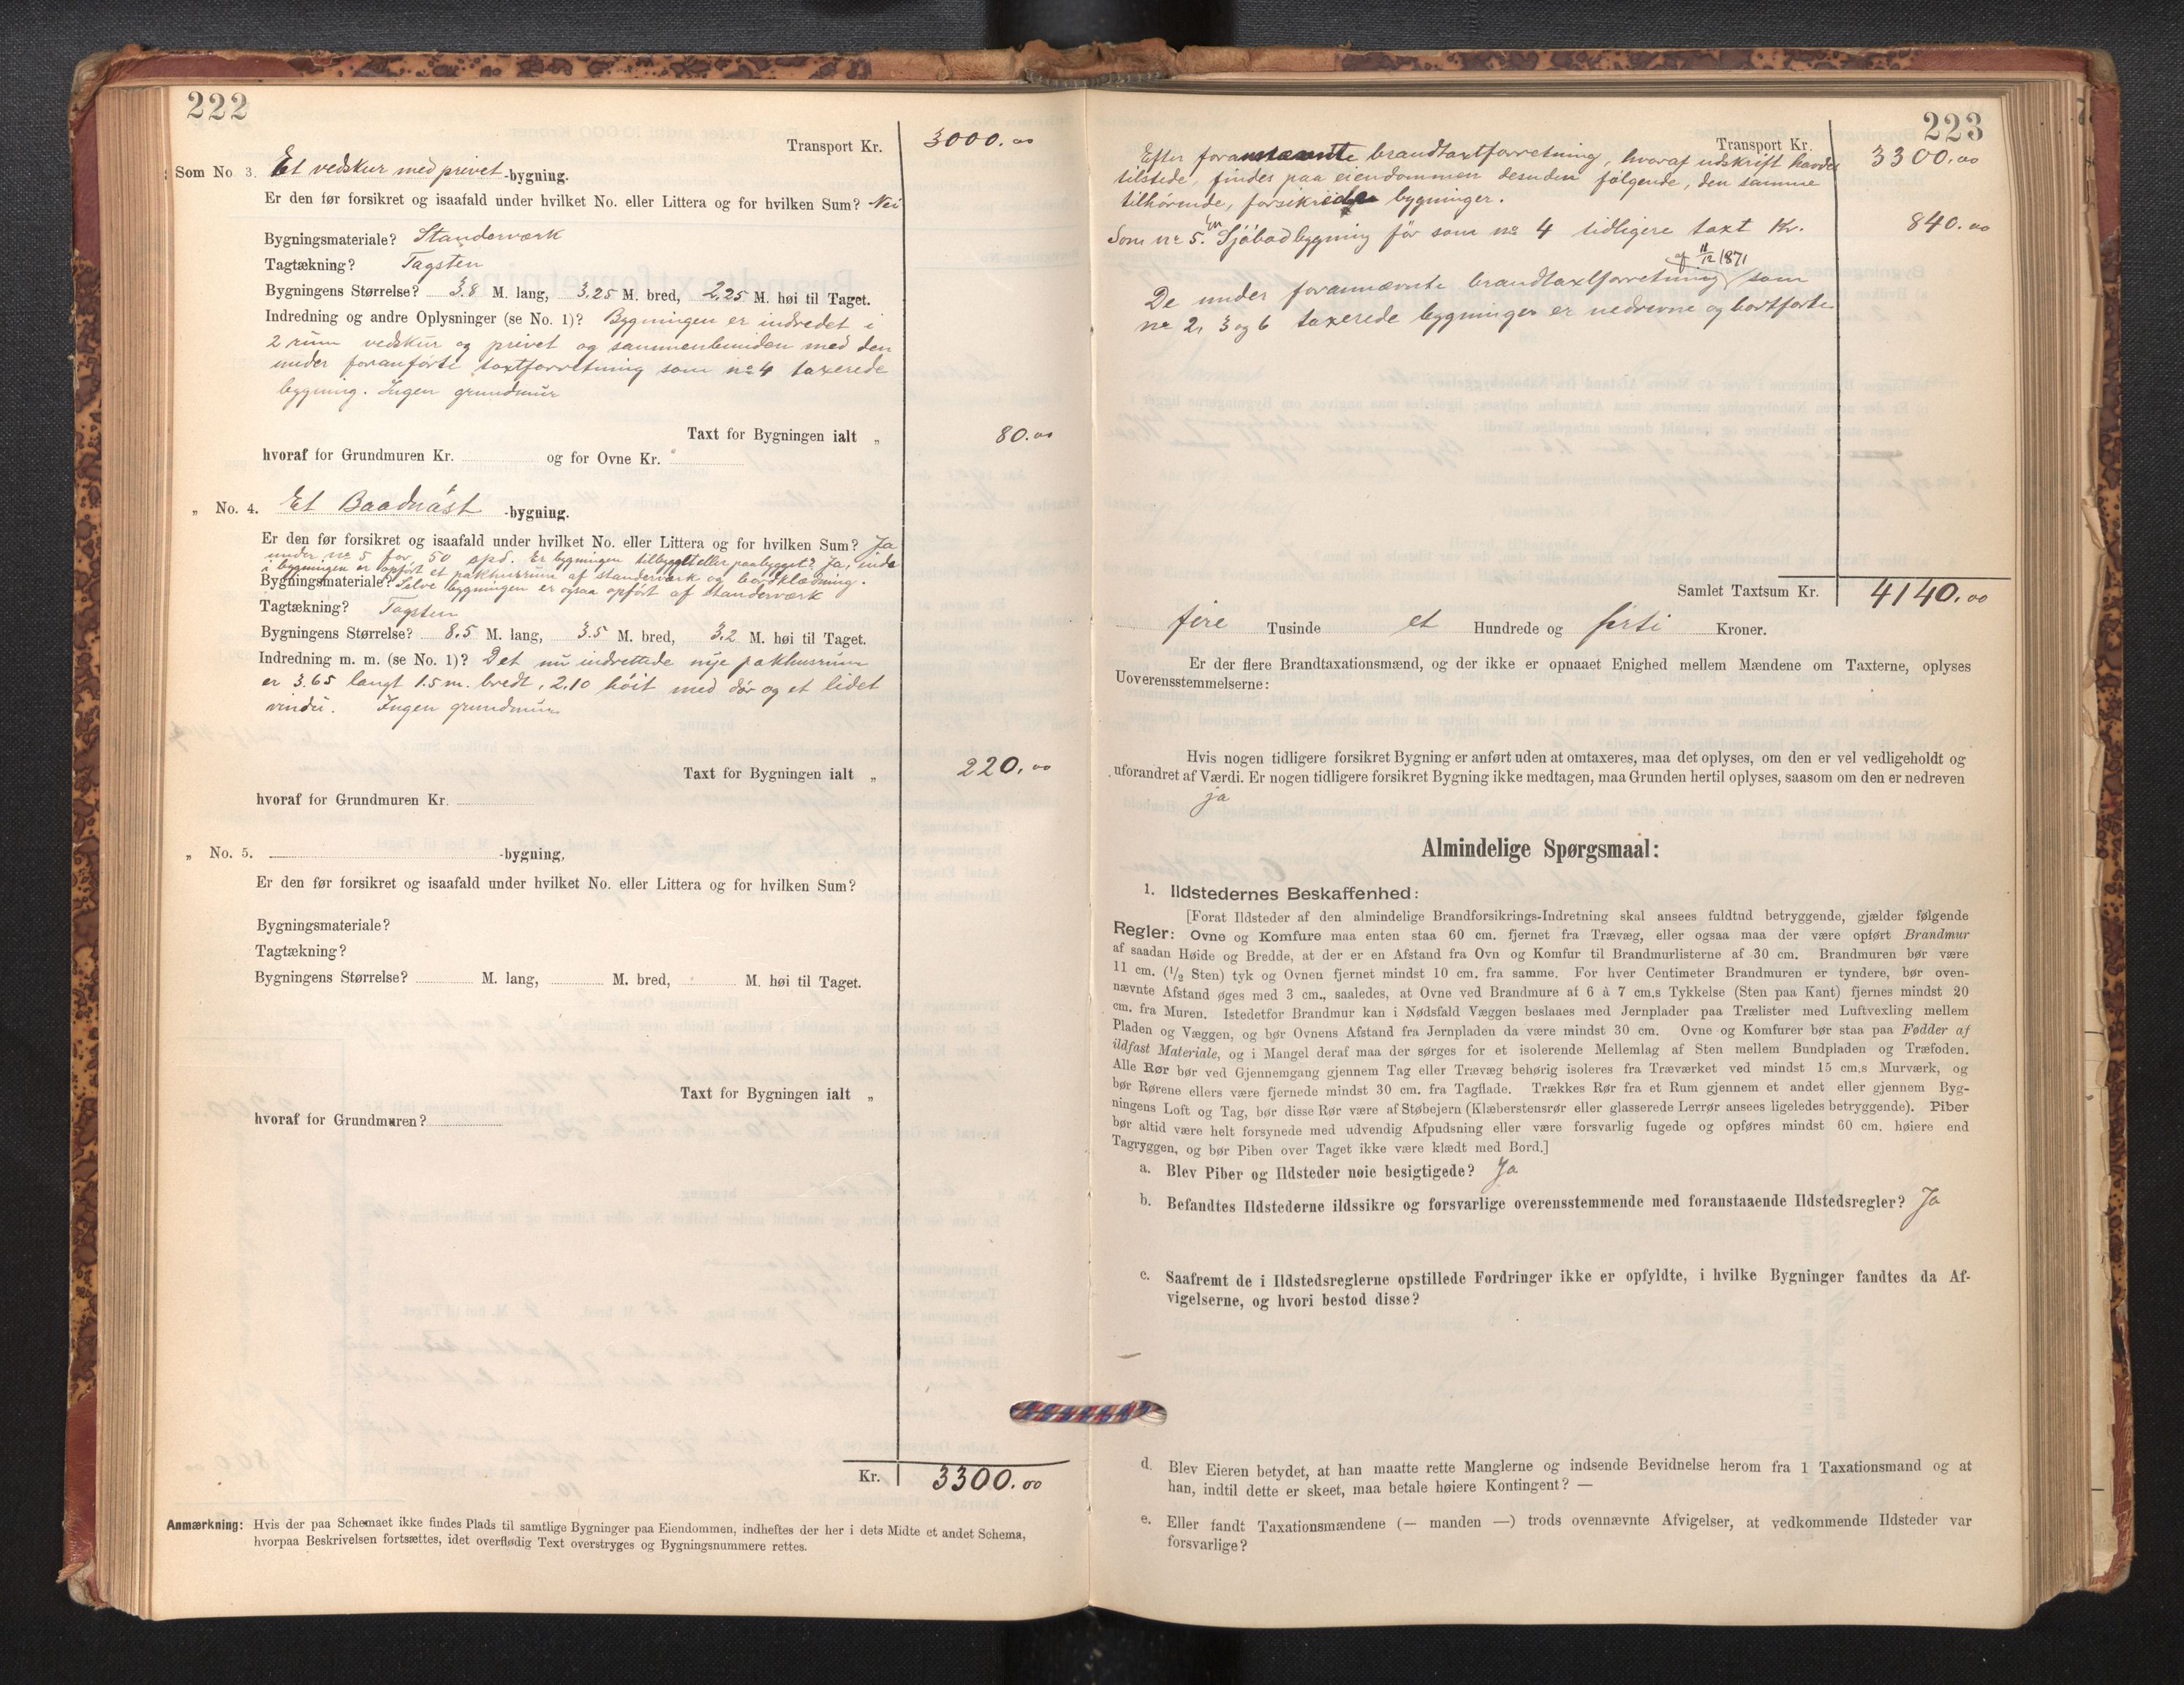 222
Transport Kr. 3000.00
Som No. 3. Et vedskur med privet -bygning.
Er den før forsikret og isaafald under hvilket No. eller Littera og for hvilken Sum? Nei
Bygningsmateriale? Standerværk
Tagtækning? Tagsten
Bygningens Størrelse? 3.8 M. lang, 3.25 M. bred, 2.25 M. høi til Taget.
Indredning og andre Oplysninger (se No. 1)? Bygningen er indredet i
2 rum vedskur og privet og sammenbunden med den
under foranførte taxtforretning som no 4 taxerede
bygning. Ingen grundmur
Taxt for Bygningen ialt „ 80.00
hvoraf for Grundmuren Kr. og for Ovne Kr.
„ No. 4. Et Baadnøst -bygning.
Er den før forsikret og isaafald under hvilket No. eller Littera og for hvilken Sum? Ja
under no 5 for 50 spd. Er bygningen tilbygget eller paabygget? Ja, inde
i bygningen er opført et pakhusrum af standerværk og bordklædning.
Bygningsmateriale? Selve bygningen er ogsaa opført af standerværk
Tagtækning? Tagsten
Bygningens Størrelse? 8.5 M. lang, 3.5 M. bred, 3.2 M. høi til Taget.
Indredning m. m. (se No. 1)? Det nu indrettede nye pakhusrum
er 3.65 langt 1.5 m. bredt, 2.10 høit med dør og et lidet
vindu. Ingen grundmur
Taxt for Bygningen ialt „ 220.00
hvoraf for Grundmuren Kr.
„ No. 5. -bygning,
Er den før forsikret og isaafald under hvilket No. eller Littera og for hvilken Sum?
Bygningsmateriale?
Tagtækning?
Bygningens Størrelse? M. lang, M. bred, M. høi til Taget.
Taxt for Bygningen ialt „
hvoraf for Grundmuren?
Kr. 3300.00
Anmærkning: Hvis der paa Schemaet ikke findes Plads til samtlige Bygninger paa Eiendommen, indheftes der her i dets Midte et andet Schema,
hvorpaa Beskrivelsen fortsættes, idet overflødig Text overstryges og Bygningsnummere rettes.
223
Transport Kr. 3300.00
Efter forannævnte brandtaxtforretning, hvoraf udskrift havdes
tilstede, findes paa eiendommen desuden følgende, den samme
tilhørende, forsikrede bygninger.
Som nr 5. En Sjøbodbygning før som no 4 tidligere taxt Kr. 840.00
af 11/12 1871
De under forannævnte brandtaxtforretning som
no 2, 3 og 6 taxerede bygninger er nedrevne og bortførte
Samlet Taxtsum Kr. 4140.00
fire Tusinde et Hundrede og førti Kroner.
Er der flere Brandtaxationsmænd, og der ikke er opnaaet Enighed mellem Mændene om Taxterne, oplyses
Uoverensstemmelserne:
Hvis nogen tidligere forsikret Bygning er anført uden at omtaxeres, maa det oplyses, om den er vel vedligeholdt og
uforandret af Værdi. Er nogen tidligere forsikret Bygning ikke medtagen, maa Grunden hertil oplyses, saasom om den er nedreven
ja
Almindelige Spørgsmaal:
1. Ildstedernes Beskaffenhed:
[Forat Ildsteder af den almindelige Brandforsikrings-Indretning skal ansees fuldtud betryggende, gjælder følgende
Regler: Ovne og Komfure maa enten staa 60 cm. fjernet fra Trævæg, eller ogsaa maa der være opført Brandmur
af saadan Høide og Bredde, at der er en Afstand fra Ovn og Komfur til Brandmurlisterne af 30 cm. Brandmuren bør være
11 cm. (1/2 Sten) tyk og Ovnen fjernet mindst 10 cm. fra samme. For hver Centimeter Brandmuren er tyndere, bør oven-
nævnte Afstand øges med 3 cm., saaledes, at Ovne ved Brandmure af 6 à 7 cm.s Tykkelse (Sten paa Kant) fjernes mindst 20
cm. fra Muren. Istedetfor Brandmur kan i Nødsfald Væggen beslaaes med Jernplader paa Trælister med Luftvexling mellem
Pladen og Væggen, og bør Ovnens Afstand fra Jernpladen da være mindst 30 cm. Ovne og Komfurer bør staa paa Fødder af
ildfast Materiale, og i Mangel deraf maa der sørges for et isolerende Mellemlag af Sten mellem Bundpladen og Træfoden.
Alle Rør bør ved Gjennemgang gjennem Tag eller Trævæg behørig isoleres fra Træværket ved mindst 15 cm.s Murværk, og
bør Rørene ellers være fjernede mindst 30 cm. fra Tagflade. Trækkes Rør fra et Rum gjennem et andet eller gjennem Byg-
ningens Loft og Tag, bør disse Rør være af Støbejern (Klæberstensrør eller glasserede Lerrør ansees ligeledes betryggende). Piber
bør altid være helt forsynede med udvendig Afpudsning eller være forsvarlig fugede og opføres mindst 60 cm. høiere end
Tagryggen, og bør Piben over Taget ikke være klædt med Bord.]
a. Blev Piber og Ildsteder nøie besigtigede? Ja
b. Befandtes Ildstederne ildssikre og forsvarlige overensstemmende med foranstaaende Ildstedsregler? Ja
c. Saafremt de i Ildstedsreglerne opstillede Fordringer ikke er opfyldte, i hvilke Bygninger fandtes da Af-
vigelserne, og hvori bestod disse?
d. Blev Eieren betydet, at han maatte rette Manglerne og indsende Bevidnelse herom fra 1 Taxationsmand og at
han, indtil dette er skeet, maa betale høiere Kontingent? —
e. Eller fandt Taxationsmændene (— manden —) trods ovennævnte Afvigelser, at vedkommende Ildsteder var
forsvarlige?